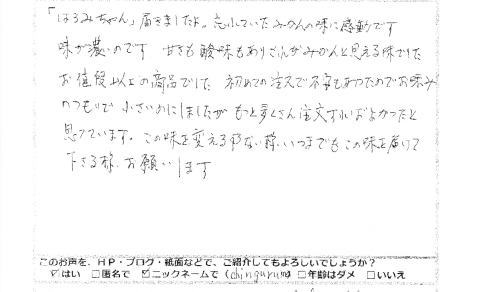 「はるみちゃん」届きましたよ。忘れていたみかんの味に感動です
味が濃いのです 甘さも酸味もありこれがみかんと思える味でした
お値段以上の商品でした 初めての注文で不安もあったのでお味み
のつもりで小さい箱にしましたが もっと多くさん注文すればよかったと
思っています。この味を変える事ない様、いつまでもこの味を届けて
下さる様、お願いします
このお声を、HP・ブログ・紙面などで、ご紹介してもよろしいでしょうか?
☑はい □匿名で ☑ニックネームで(chinguruma) □年齢はダメ □いいえ